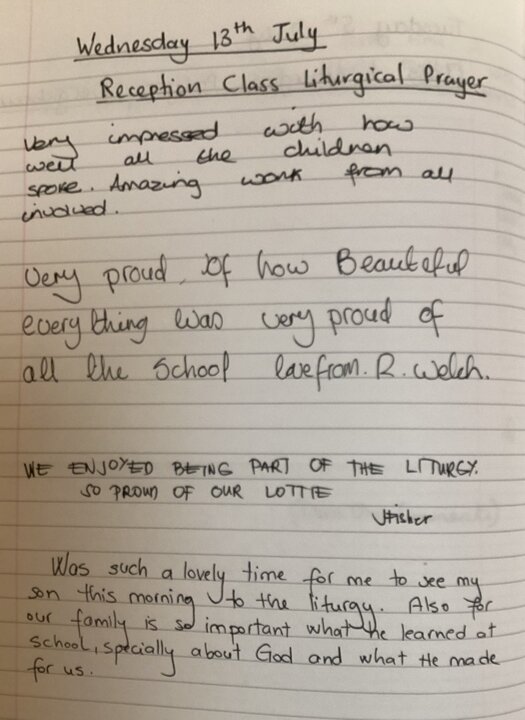 Wednesday 13th July
Reception Class Liturgical Prayer
Very impressed with how
well all the children
spoke. Amazing work from all
involved.
Very proud of how Beauteful
everything was very proud of
all the School love from R. Welch.
WE ENJOYED BEING PART OF THE LITURGY.
SO PROUD OF OUR LOTTIE
Fisher
Was such a lovely time for me to see my
son this morning to the liturgy. Also for
our family is so important what he learned at
school, specially about God and what He made
for us.